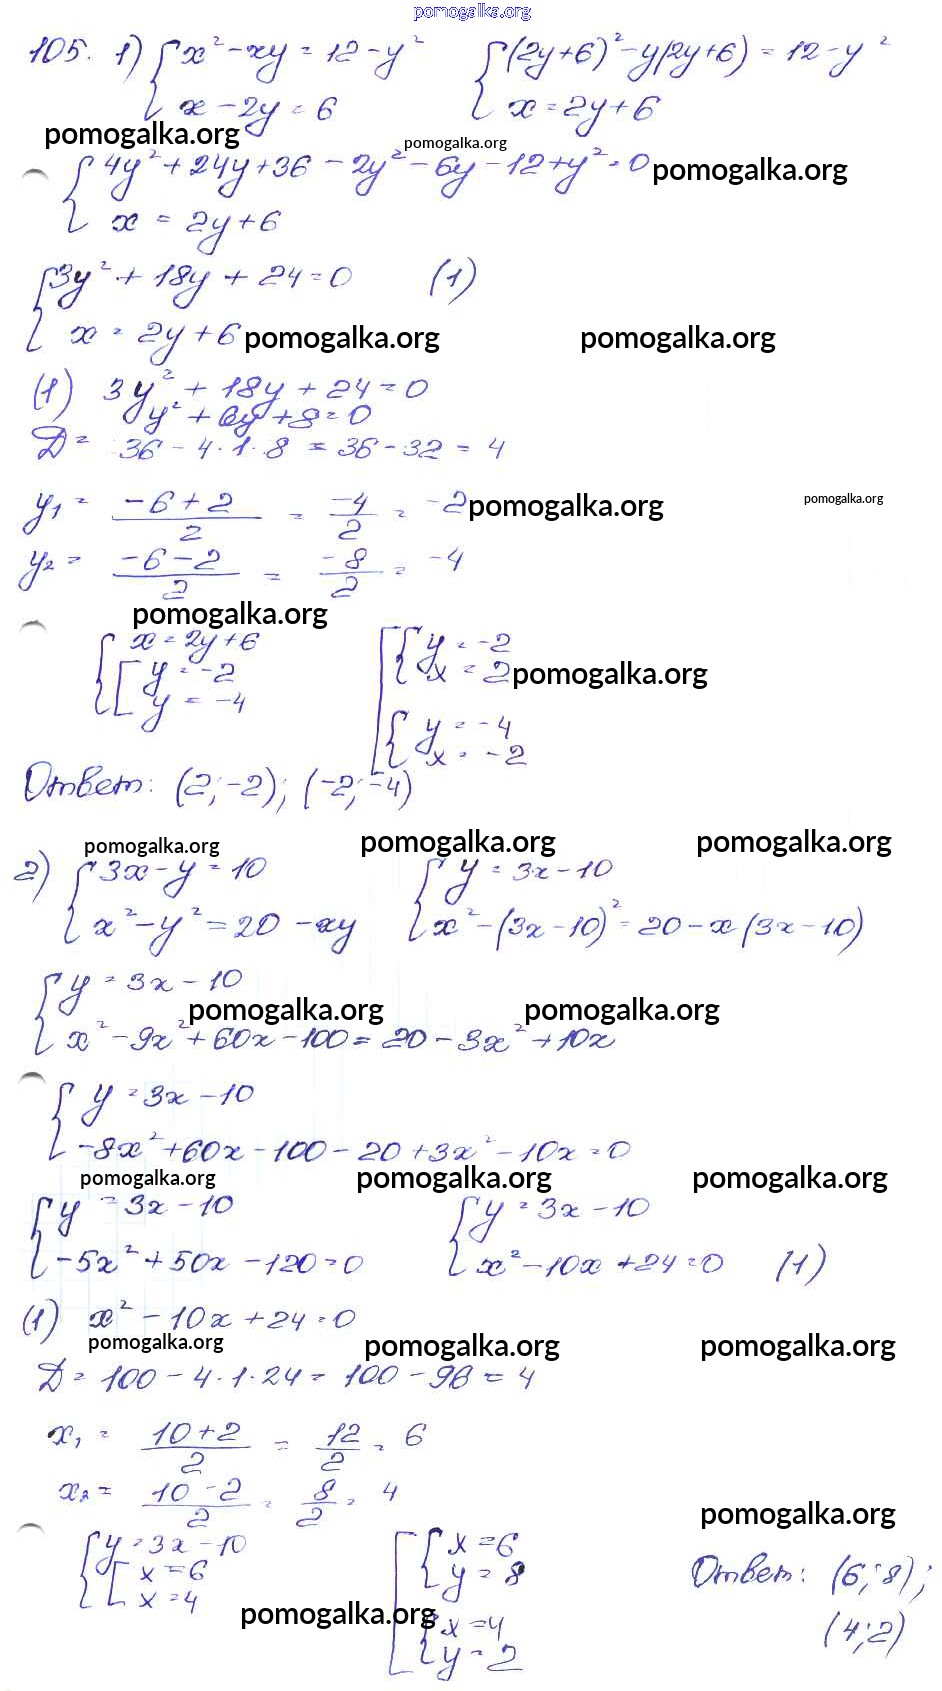 pomogalka.org
105. 1) { x² - xy = 12 - y² { (2y+6)² - y(2y+6) = 12 - y²
x - 2y = 6 x = 2y+6
pomogalka.org pomogalka.org
{ 4y² + 24y + 36 - 2y² - 6y - 12 + y² = 0 pomogalka.org
x = 2y+6
{ 3y² + 18y + 24 = 0 (1)
x = 2y+6 pomogalka.org pomogalka.org
(1) 3y² + 18y + 24 = 0
y² + 6y + 8 = 0
D = 36 - 4·1·8 = 36 - 32 = 4
y₁ = (-6+2)/2 = -4/2 = -2 pomogalka.org pomogalka.org
y₂ = (-6-2)/2 = -8/2 = -4
pomogalka.org
{ x = 2y+6 [ { y = -2
[ y = -2 x = 2 pomogalka.org
y = -4 { y = -4
x = -2
Ответ: (2; -2); (-2; -4)
pomogalka.org pomogalka.org pomogalka.org
2) { 3x - y = 10 { y = 3x - 10
x² - y² = 20 - xy x² - (3x - 10)² = 20 - x(3x - 10)
{ y = 3x - 10
pomogalka.org pomogalka.org
x² - 9x² + 60x - 100 = 20 - 3x² + 10x
{ y = 3x - 10
-8x² + 60x - 100 - 20 + 3x² - 10x = 0
pomogalka.org pomogalka.org pomogalka.org
{ y = 3x - 10 { y = 3x - 10
-5x² + 50x - 120 = 0 x² - 10x + 24 = 0 (1)
(1) x² - 10x + 24 = 0
pomogalka.org pomogalka.org pomogalka.org
D = 100 - 4·1·24 = 100 - 96 = 4
x₁ = (10+2)/2 = 12/2 = 6
x₂ = (10-2)/2 = 8/2 = 4
pomogalka.org
{ y = 3x - 10 [ { x = 6
[ x = 6 y = 8 Ответ: (6; 8);
x = 4
pomogalka.org { x = 4 (4; 2)
y = 2